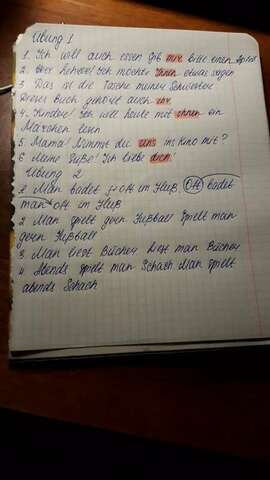 Übung 1
1. Ich will auch essen gib mir bitte einen Apfel
2. Herr Lehrer! Ich möchte Ihnen etwas sagen
3 Das ist die Tasche meiner Schwester
Dieses Buch gehört auch ihr.
4. Kinder! Ich will heute mit ihnen ein
Märchen lesen
5. Mama! Nimmst du uns ins Kino mit?
6 Meine Süße! Ich liebe dich.
Übung 2
Man badet oft im Fluß. Oft badet
man oft im Fluß
2 Man spielt gern Fußball Spielt man
gern Fußball
3 Man liest Bücher Liest man Bücher
4 Abends spielt man Schach Man spielt
abends Schach